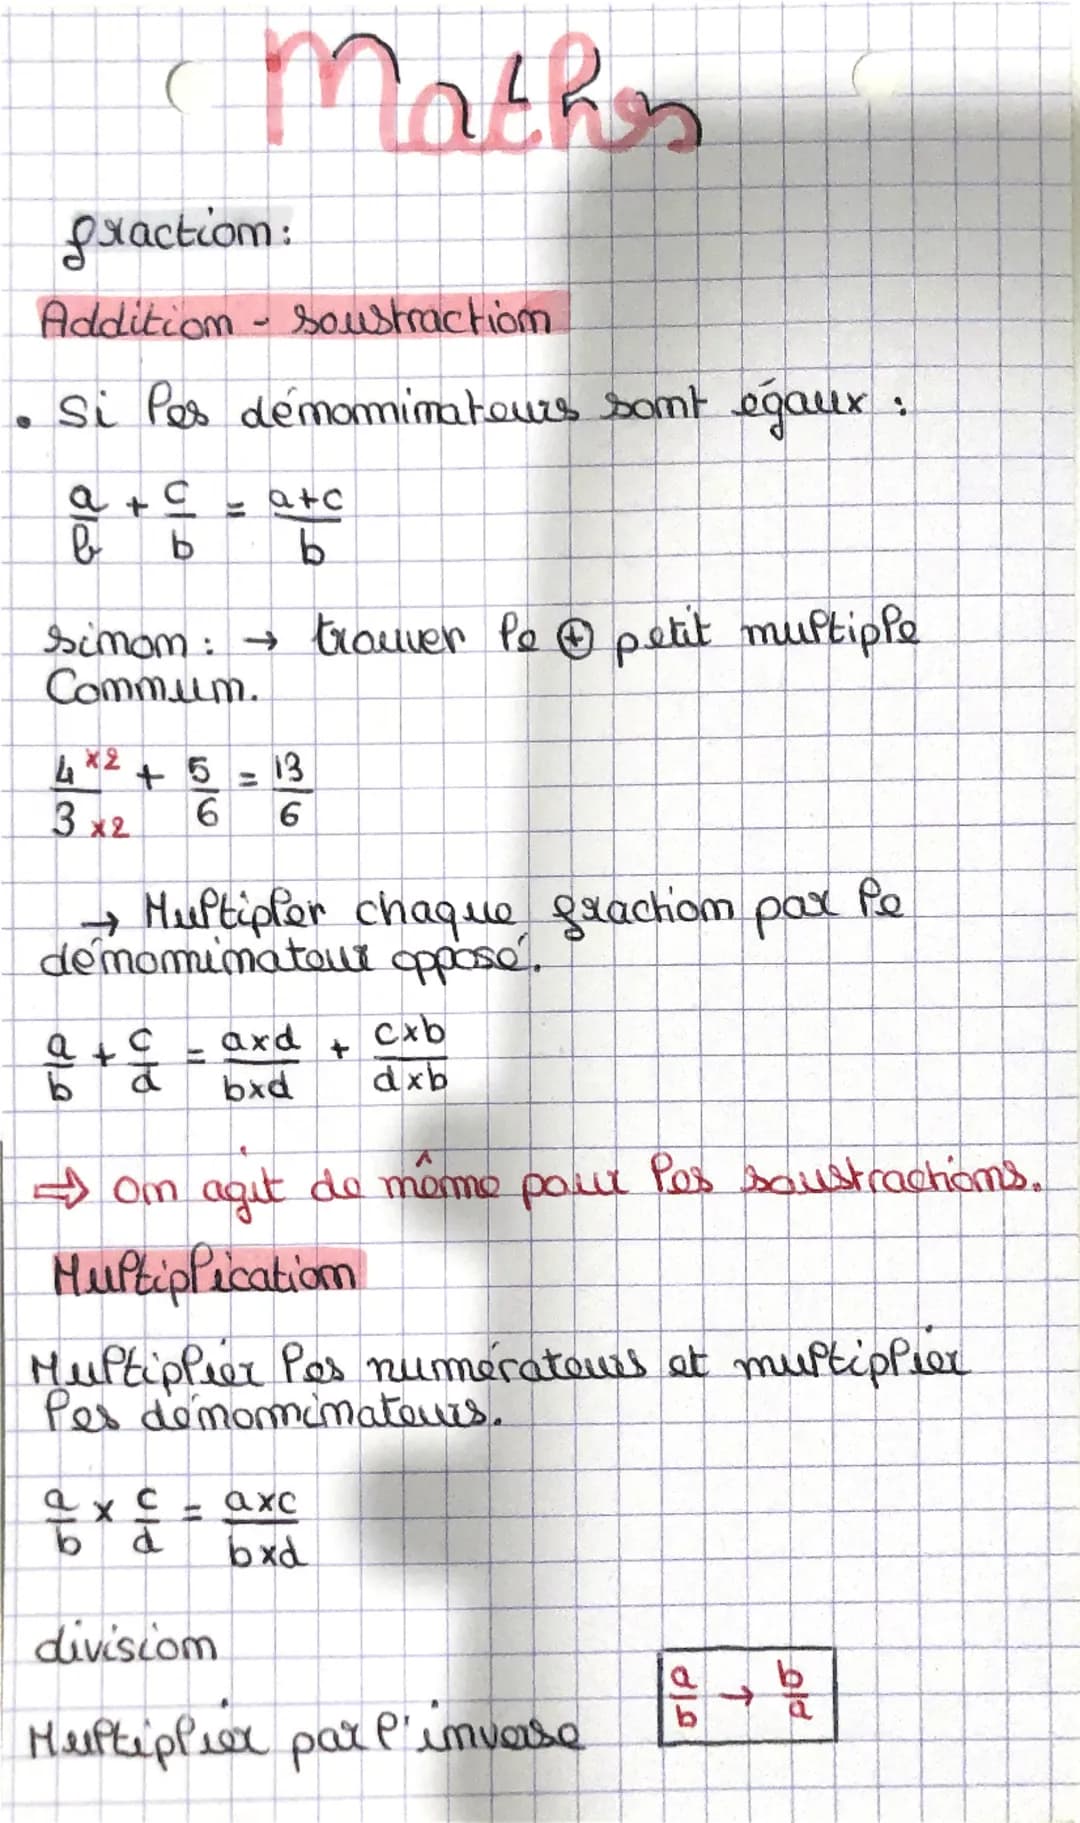 Maths
fraction :
Addition - soustraction
• Si les dénominateurs sont égaux :
a/b + c/b = a+c/b
sinon : → trouver le ⊕ petit multiple
Commun.
4 ×2/3 ×2 + 5/6 = 13/6
→ Multipler chaque fraction par le
dénominateur opposé.
a/b + c/d = a×d/b×d + c×b/d×b
⇒ on agit de même pour les soustractions.
Multiplication
Multiplier les numérateurs et multiplier
les dénominateurs.
a/b × c/d = a×c/b×d
division
Multiplier par l'inverse a/b → b/a